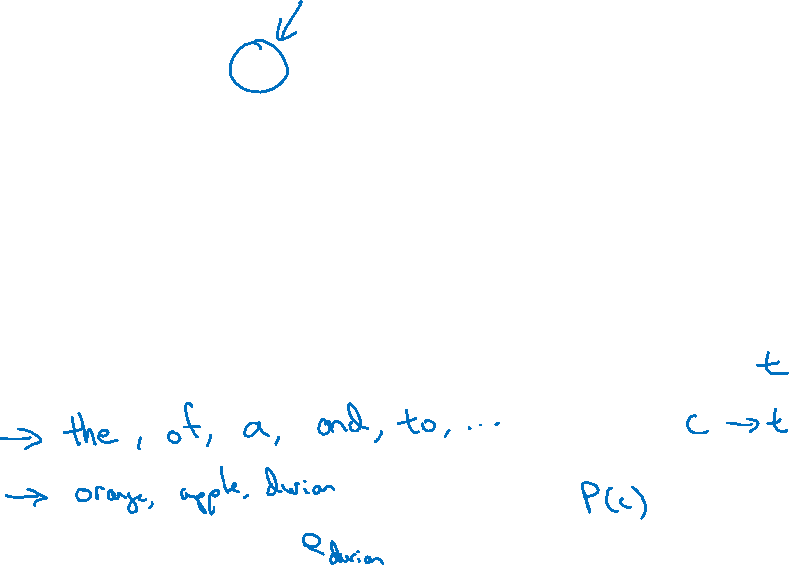 t
→ the, of, a, and, to, ... c → t
→ orange, apple, durian
P(c)
e durian